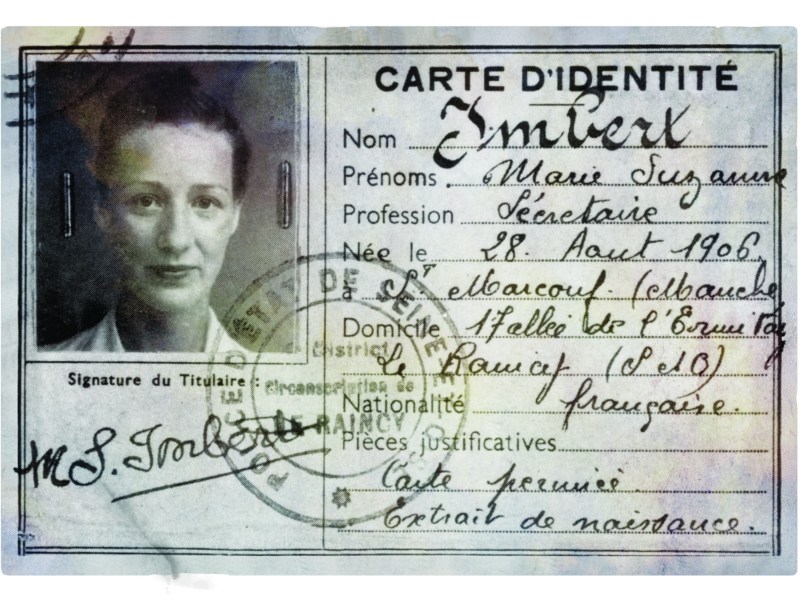 CARTE D'IDENTITÉ
Nom Imbert
Prénoms Marie Suzanne
Profession Sécretaire
Née le 28 Aout 1906
à St Marcouf. (Manche
Domicile 17 allée de l'Ermitag
Le Raincy (S et O)
Nationalité française.
Pièces justificatives
Carte
Extrait de naissance.
Signature du Titulaire :
M S. Imbert
DE SEINE-ET-
District
Circonscription de
LE RAINCY